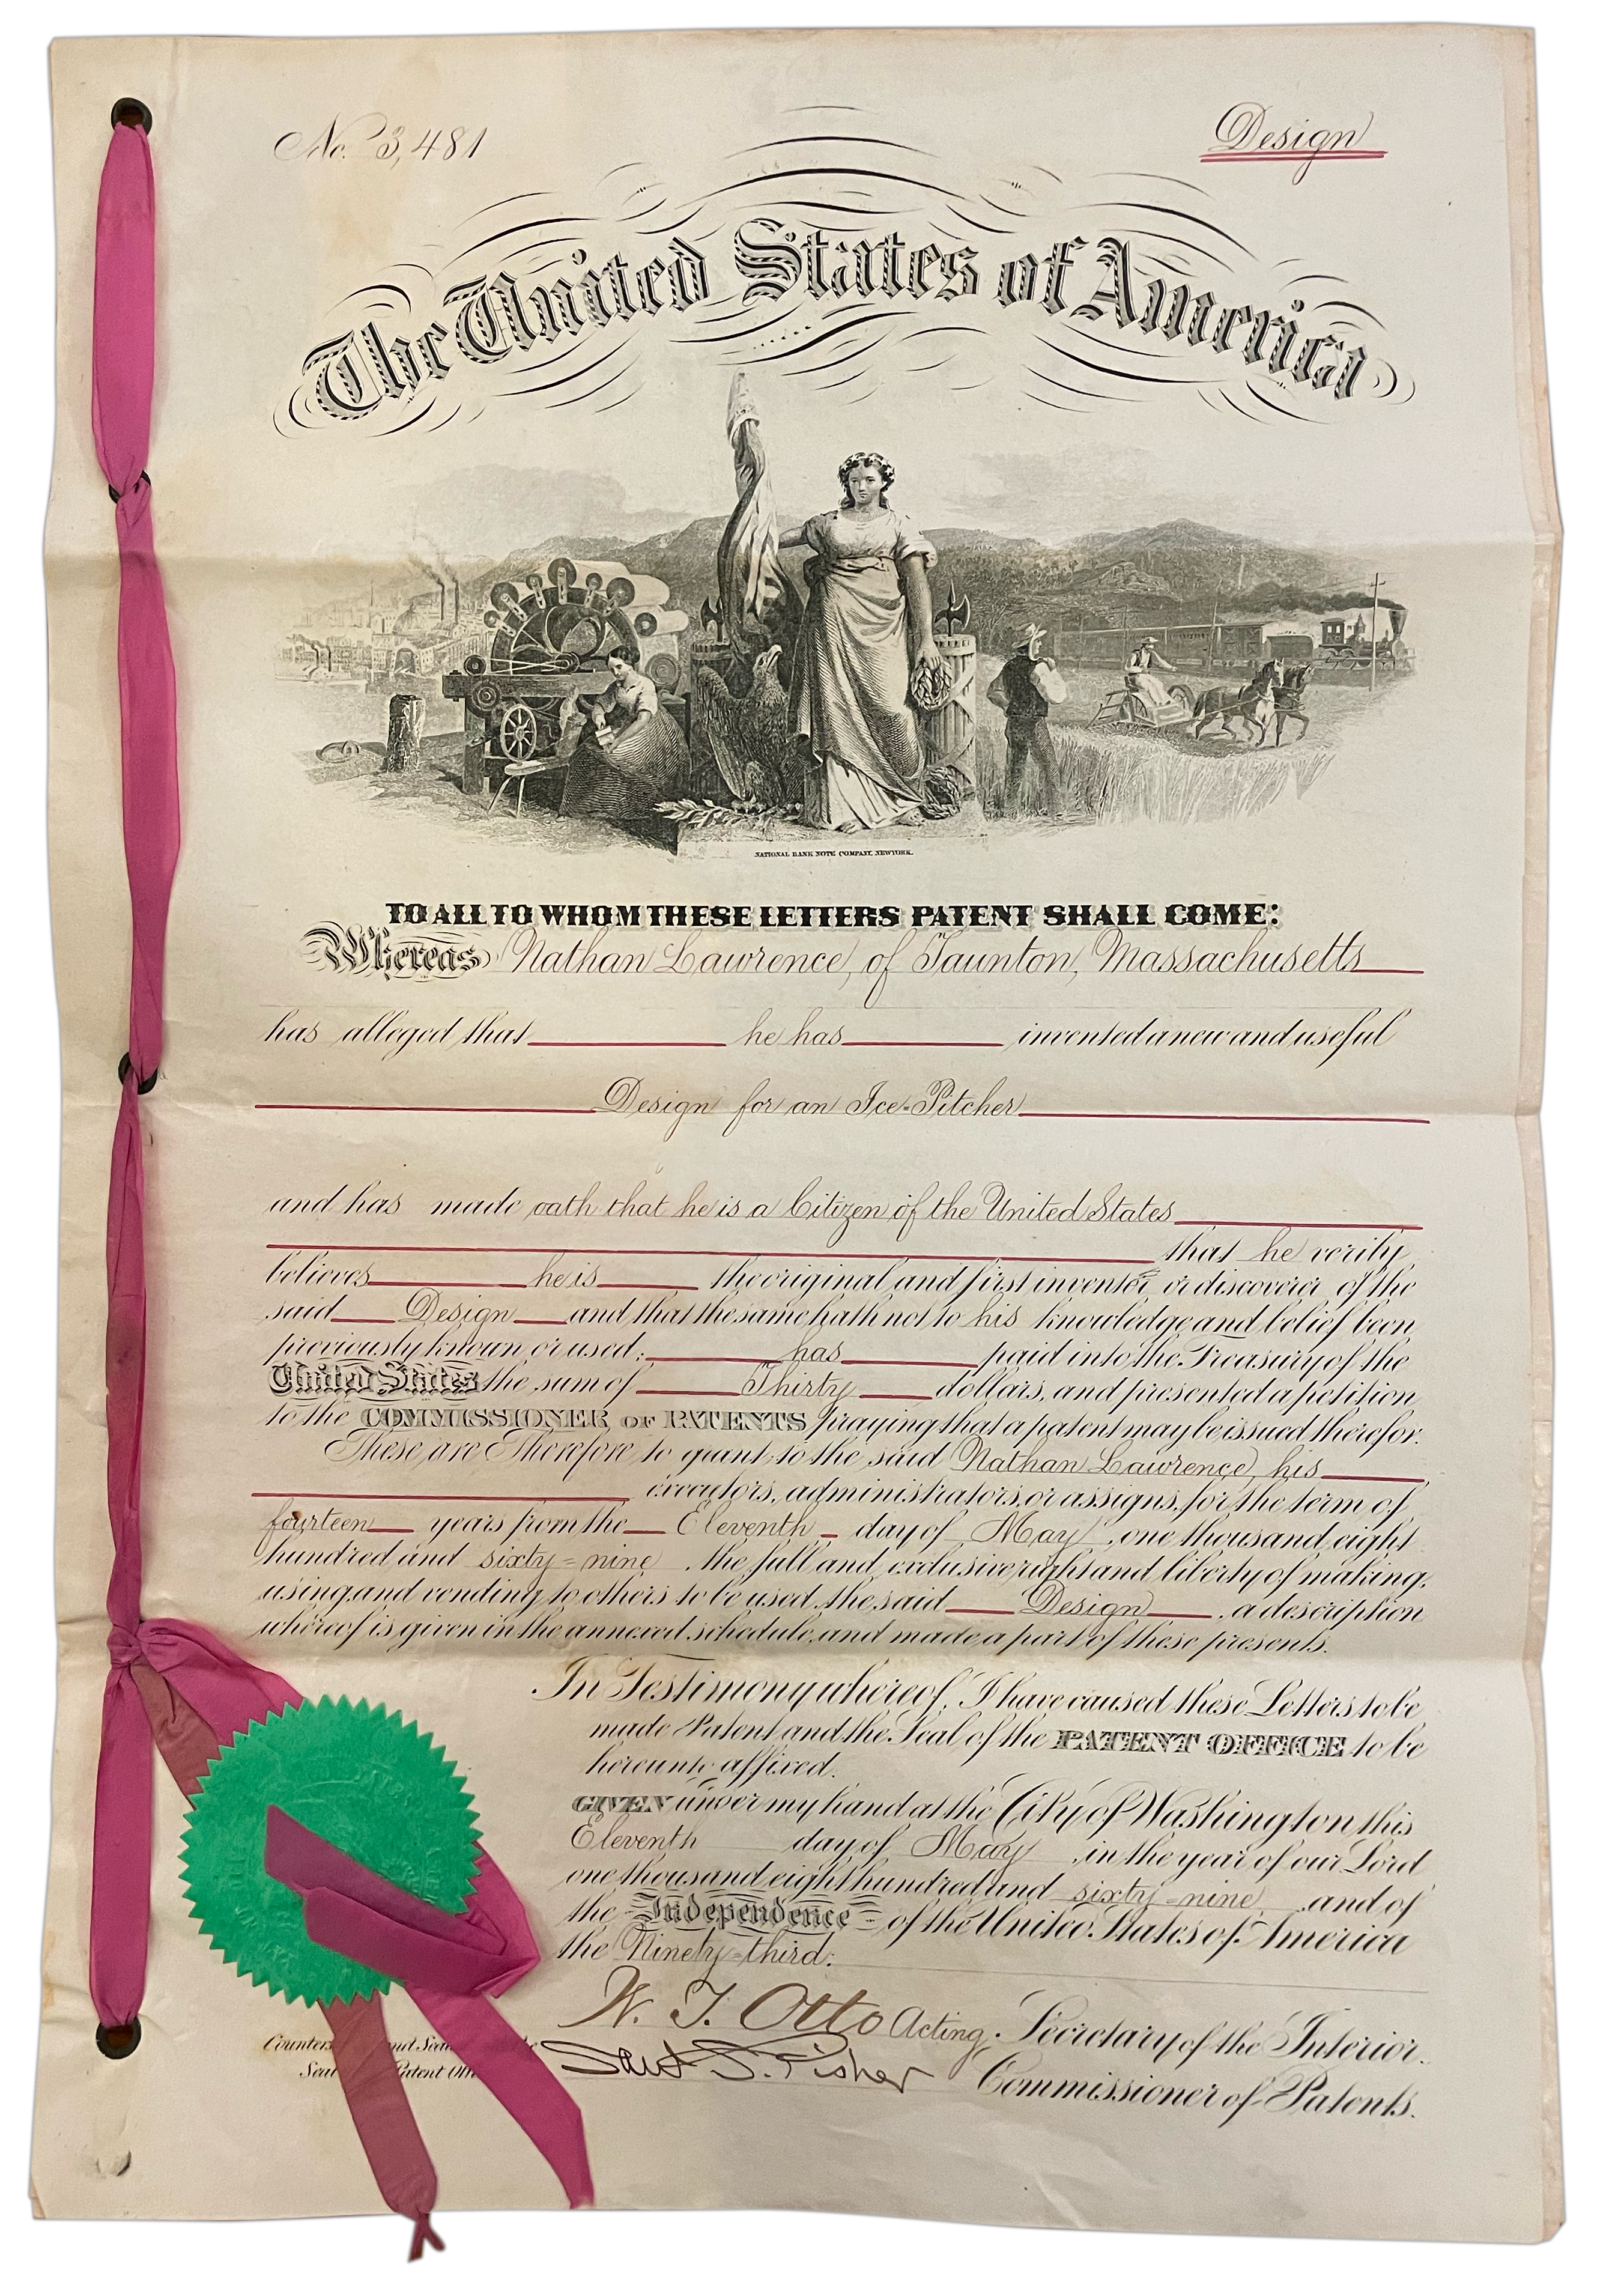 No. 3,481
Design
The United States of America
NATIONAL BANK NOTE COMPANY, NEW YORK.
TO ALL TO WHOM THESE LETTERS PATENT SHALL COME:
Whereas Nathan Lawrence, of Taunton, Massachusetts
has alleged that he has invented a new and useful
Design for an Ice-Pitcher
and has made oath that he is a Citizen of the United States
that he verily
believes he is the original and first inventor, or discoverer of the
said Design and that the same hath not to his knowledge and belief been
previously known or used; has paid into the Treasury of the
United States the sum of Thirty dollars, and presented a petition
to the COMMISSIONER OF PATENTS praying that a patent may be issued therefor.
These are Therefore to grant to the said Nathan Lawrence, his
executors, administrators, or assigns, for the term of
fourteen years from the Eleventh day of May, one thousand eight
hundred and sixty=nine, the full and exclusive right and liberty of making,
using and vending to others to be used, the said Design, a description
whereof is given in the annexed schedule, and made a part of these presents.
In Testimony whereof, I have caused these Letters to be
made Patent and the Seal of the PATENT OFFICE to be
hereunto affixed.
GIVEN under my hand at the City of Washington this
Eleventh day of May, in the year of our Lord
one thousand eight hundred and sixty=nine, and of
the Independence of the United States of America
the Ninety=third.
W. T. Otto Acting Secretary of the Interior.
Counters nd Sea
Saml S. Fisher Commissioner of Patents.
Seal Patent Off